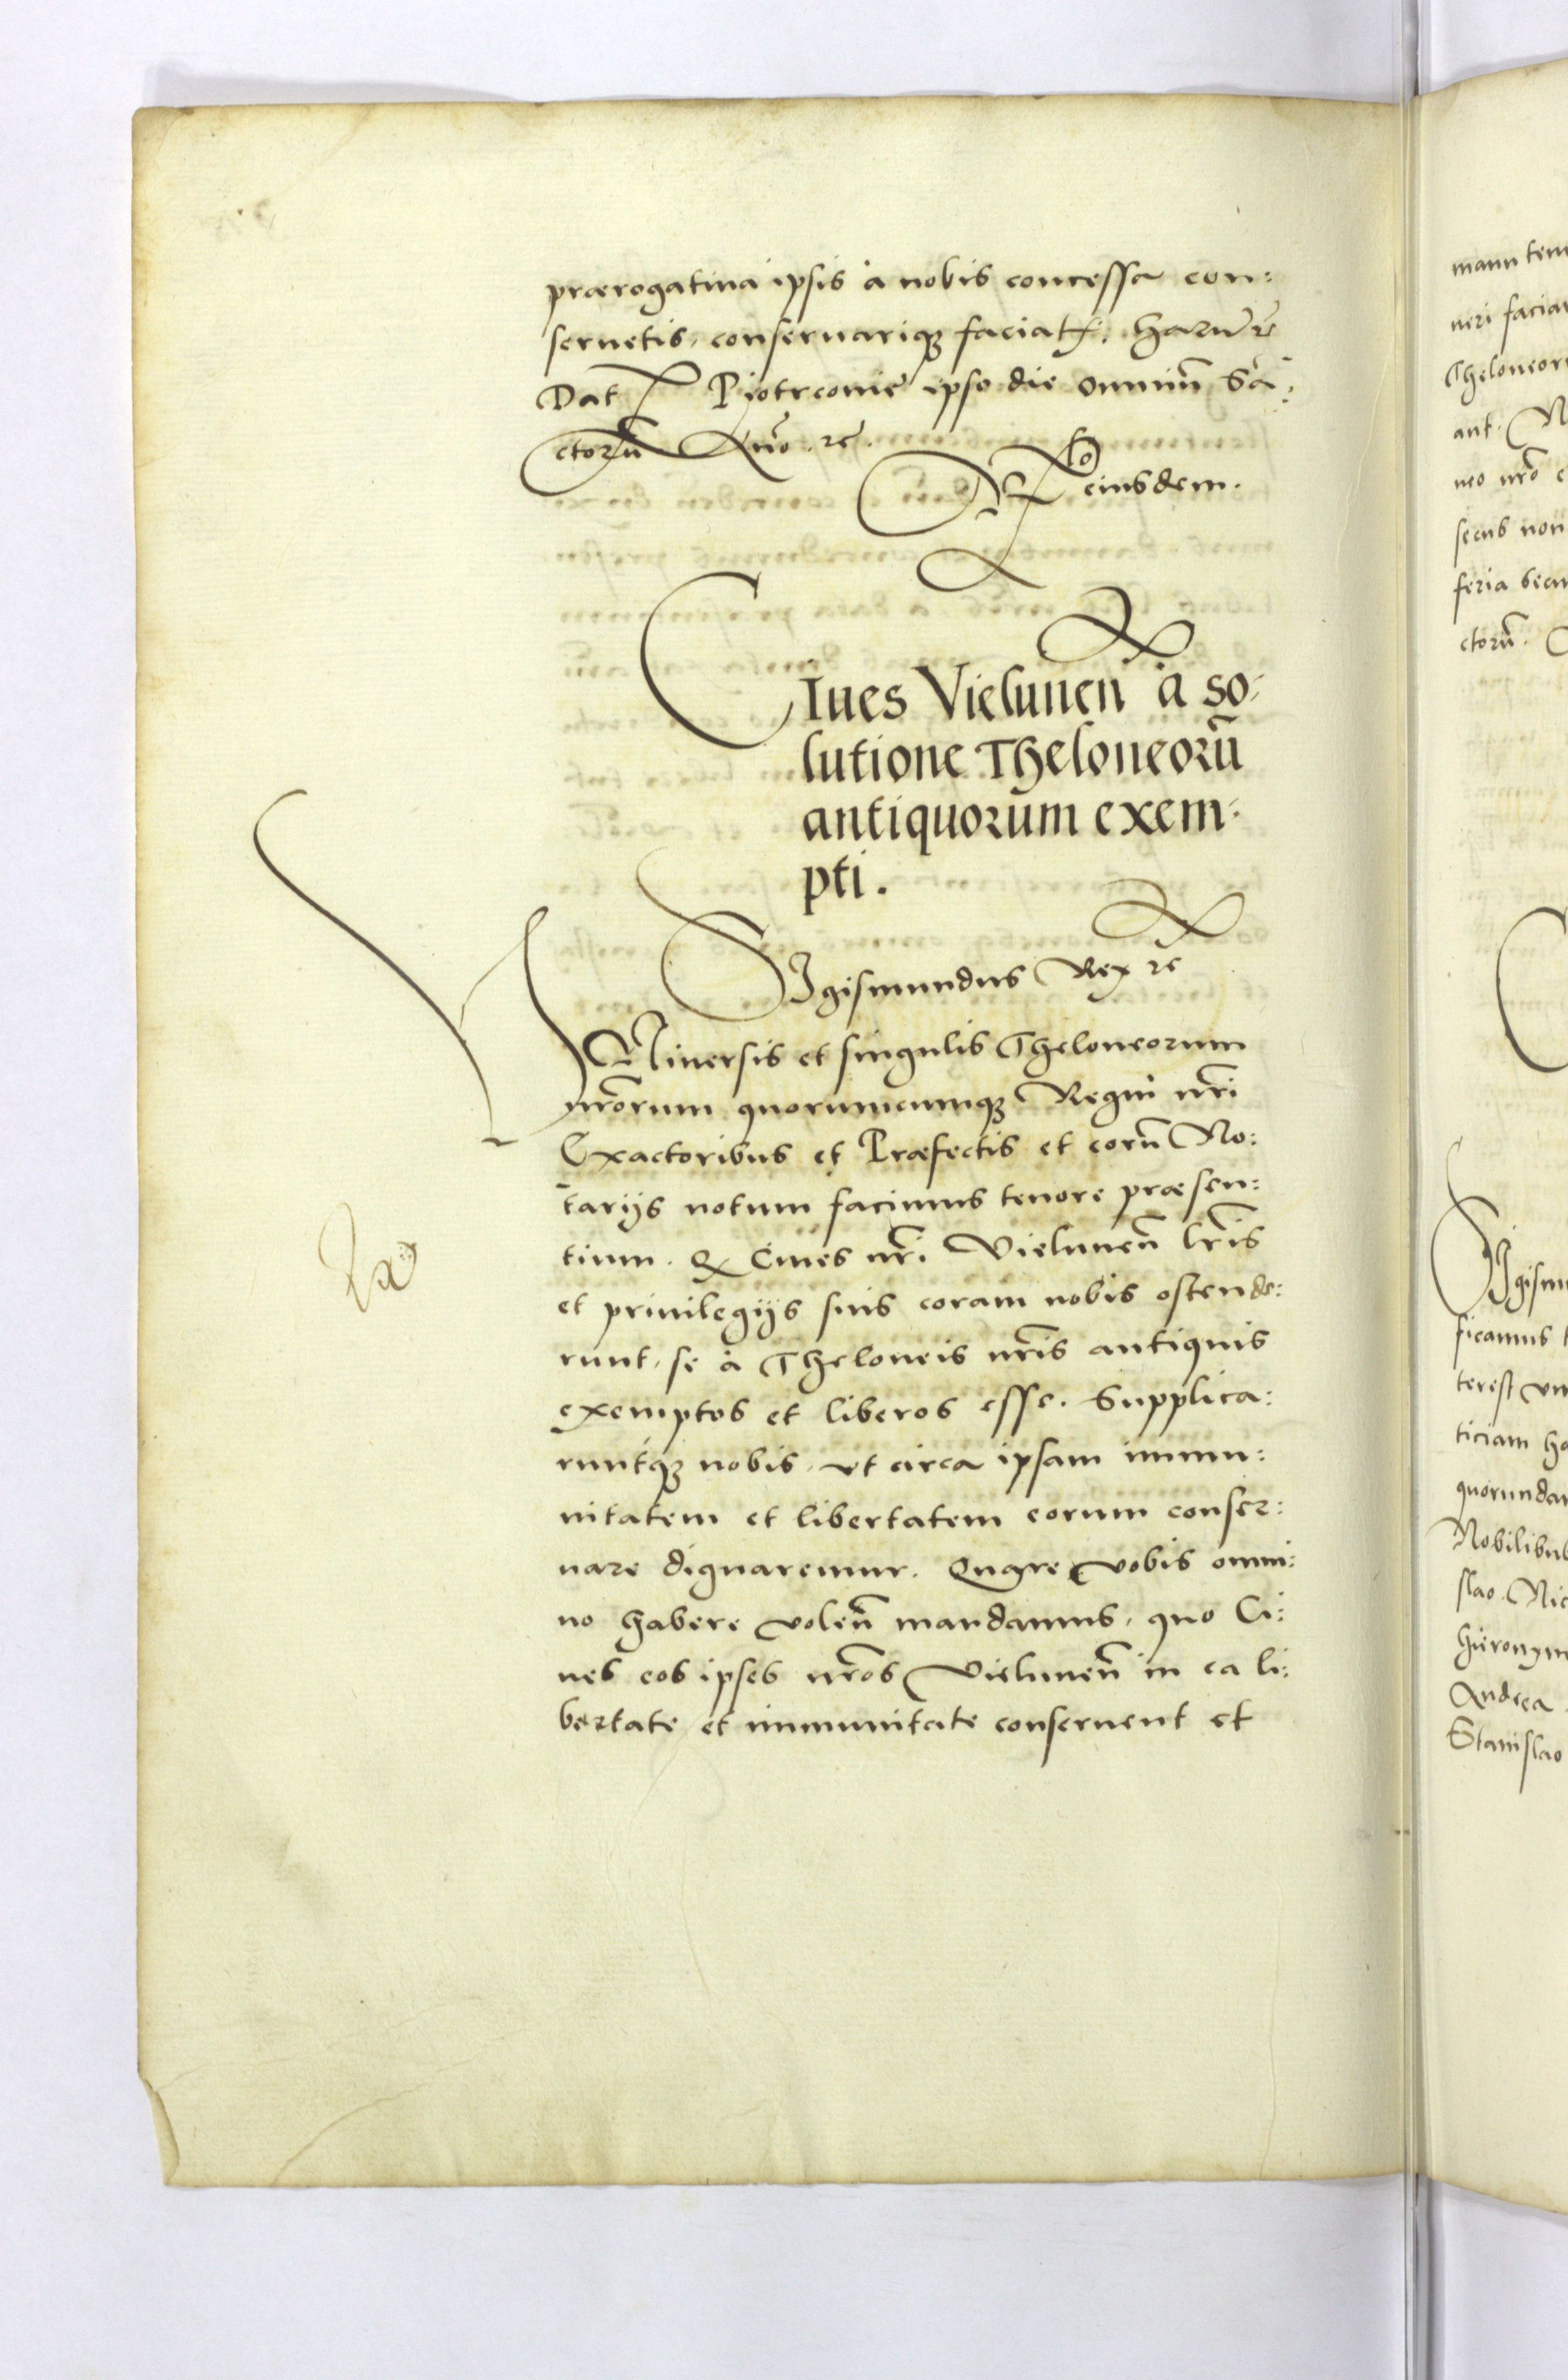 prærogatiua ipsis à nobis concessa con:
seruetis, conseruariq₃ faciatꝭ. Harū rc̃
Dat Piotrcouie ipso die omniuṁ Sa:
ctorū Anno. rc̃.
Rᵒ eiusdem.
CIues Vielunen̄ à so:
lutione Theloneorū
antiquorum exem:
pti.
SIgismundus Rex rc̃
VNiuersis et singulis Theloneorum
nr̃orum quorumcumq₃ Regni nr̃i
Exactoribus et Præfectis et eorū No:
tarijs notum facimus tenore præsen:
tium. Q Ciues nr̃i Vielunen̄ lr̃is
et priuilegijs suis coram nobis ostende:
runt, se à Theloneis nr̃is antiquis
exemptos et liberos esse. Supplica:
runtq₃ nobis, vt circa ipsam immu:
nitatem et libertatem eorum conser:
uare dignaremur. Quare vobis omni:
no habere volen̄ mandamus, quo Ci:
ues eos ipsos nr̃os Vielunen̄ in ea li:
bertate et immunitate conseruent et
mann tem
neri faciat
Theloneor
ant. N
neo nr̃o e
secus non
feria secu
ctorū.
Sigism
ficamus
terest vn
ticiam ha
quorundam
Nobilibus
slao. Nic
Hieronym
Andrea
Stanislao